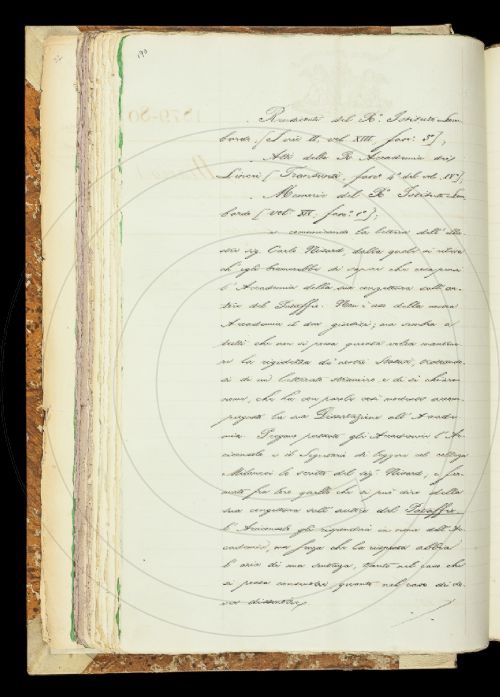 190
1879-80
. Rendiconti del R.º Istituto Lom
bardo [Serie II, vol. XIII, fasc. 3º];
. Atti della R. Accademia dei
Lincei [Transunti, fasc. 4º del vol. IVº]
. Memorie del R.º Istituto Lom
bardo [vol. XIV, fasc. 1º];
e comunicando la lettera dell' illu
stre sig. Carlo Nisard, dalla quale si rileva
ch' egli bramerebbe di sapere che cosa pensi
l' Accademia della sua congettura sull' au
tore del Pataffio. Non è uso della nostra
Accademia il dar giudizi; ma sembra a
tutti che non si possa questa volta mantene
re la rigidezza dei nostri Statuti, trattando
si di un letterato straniero e di sì chiaro
nome, che ha con parole così modeste accom
pagnata la sua Dissertazione all' Accade
mia. Pregano pertanto gli Accademici l' Ar
ciconsolo e il Segretario di leggere col collega
Milanesi lo scritto del sig.r Nisard, e fer
mata fra loro quello che si può dire della
sua congettura sull' autore del Pataffio
l' Arciconsolo gli risponderà in nome dell' Ac
cademia, ma senza che la risposta abbia
l' aria di una sentenza, tanto nel caso che
si possa consentire quanto nel caso di do
ver dissentire.